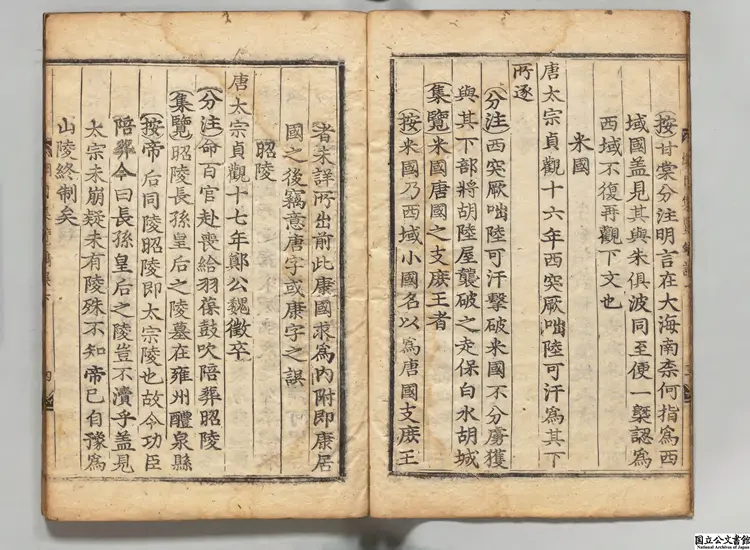 按甘棠分注明言在大海南柰何指爲西
域國盖見其與朱俱波同至便一槩認爲
西域不復再觀下文也
米國
唐太宗貞觀十六年西突厥咄陸可汗爲其下
所逐
分注西突厥咄陸可汗擊破米國不分虜獲
與其下部將胡陸屋襲破之走保白水胡城
集覽米國唐國之支庶王者
按米國乃西域小國名以爲唐國支庶王
者未詳所出前此康國求爲内附即康居
國之後竊意唐字或康字之誤
昭陵
唐太宗貞觀十七年鄭公魏徵卒
分注命百官赴喪給羽葆鼓吹陪葬昭陵
集覽昭陵長孫皇后之陵墓在雍州醴泉縣
按帝后同陵昭陵即太宗陵也故令功臣
陪葬今曰長孫皇后之陵豈不瀆乎盖見
太宗未崩疑未有陵殊不知帝已自豫爲
山陵終制矣
四
国立公文書館
National Archives of Japan